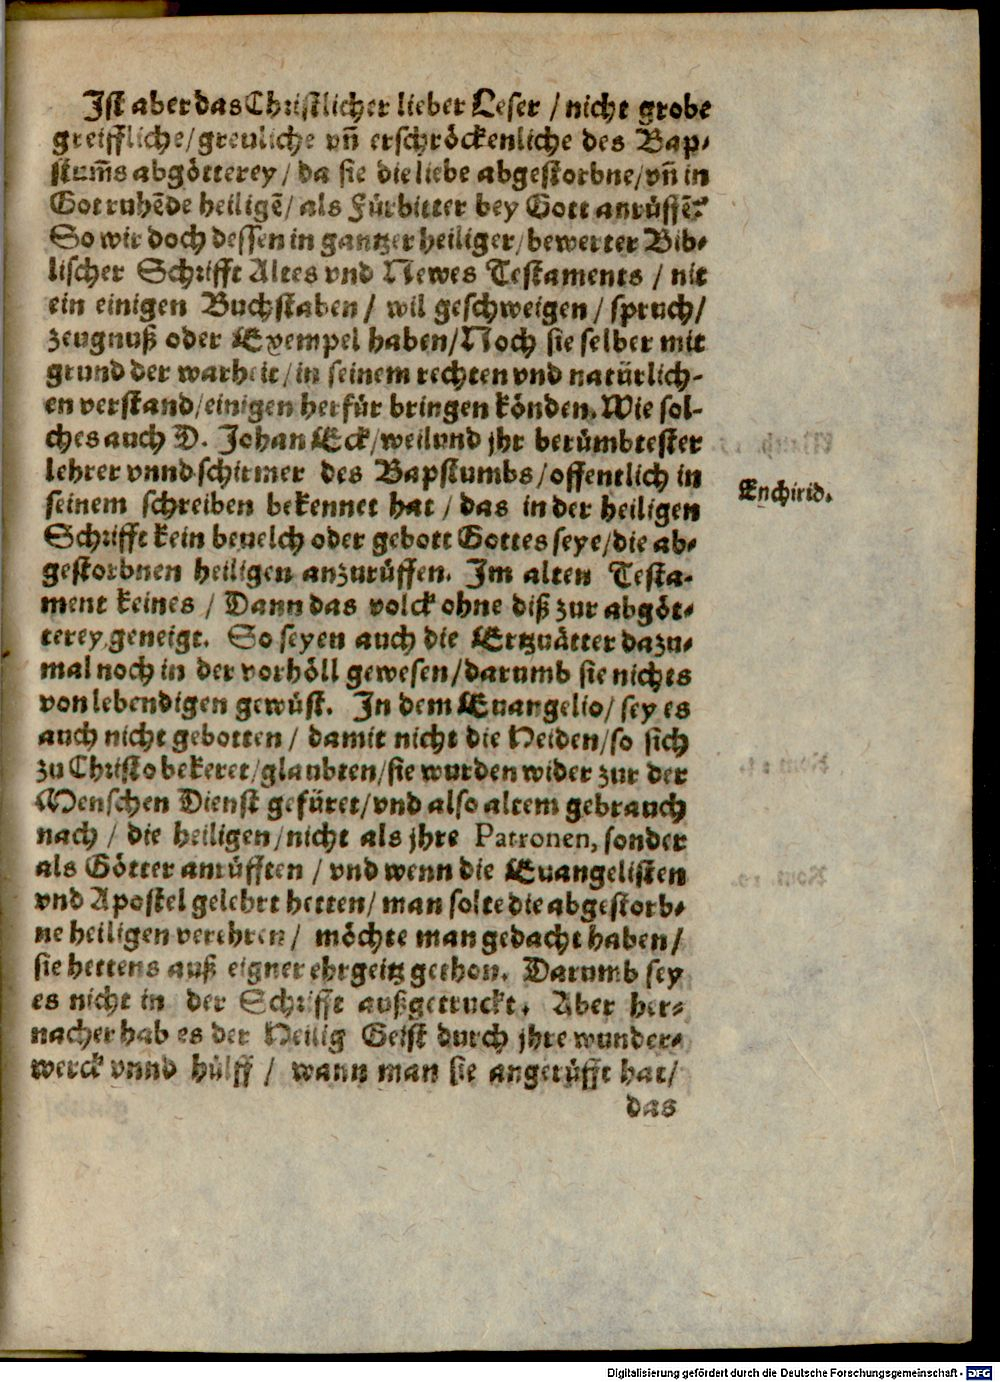 Jst aber das Christlicher lieber Leser / nicht grobe
greiffliche/greuliche vñ erschröckenliche des Bap-
stum̃s abgötterey / da sie die liebe abgestorbne/vñ in
Got ruhẽde heiligẽ/ als Fürbitter bey Gott anrüffẽ?
So wir doch dessen in gantzer heiliger/bewerter Bib-
lischer Schrifft Altes vnd Newes Testaments / nit
ein einigen Buchstaben / wil geschweigen / spruch/
zeugnuß oder Exempel haben/Noch sie selber mit
grund der warheit/in seinem rechten vnd natürlich-
en verstand/einigen herfür bringen könden. Wie sol-
ches auch D. Johan Eck/weilund jhr berümbtester
lehrer vnnd schirmer des Bapstumbs/offentlich in
seinem schreiben bekennet hat / das in der heiligen
Enchirid.
Schrifft kein beuelch oder gebott Gottes seye/die ab-
gestorbnen heiligen anzurüffen. Im alten Testa-
ment keines / Dann das volck ohne diß zur abgöt-
terey geneigt. So seyen auch die Ertzuätter dazu-
mal noch in der vorhöll gewesen/darumb sie nichts
von lebendigen gewüst. In dem Euangelio/ sey es
auch nicht gebotten / damit nicht die Heiden/so sich
zu Christo bekeret/glaubten/sie wurden wider zur der
Menschen Dienst gefüret/vnd also altem gebrauch
nach / die heiligen/nicht als jhre Patronen, sonder
als Götter anrüfften / vnd wenn die Euangelisten
vnd Apostel gelehrt hetten/ man solte die abgestorb-
ne heiligen verehren / möchte man gedacht haben /
sie hettens auß eigner ehrgeitz gethon. Darumb sey
es nicht in der Schrifft außgetruckt. Aber her-
nacher hab es der Heilig Geist durch jhre wunder-
werck vnnd hülff / wann man sie angerüfft hat/
das
Digitalisierung gefördert durch die Deutsche Forschungsgemeinschaft - DFG